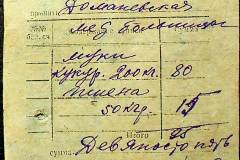 Доманевская
мед больницы
муки
кукур. 200 кг. 80
пшена
50 кг. 15
Итого 95
сумма Девяносто пять